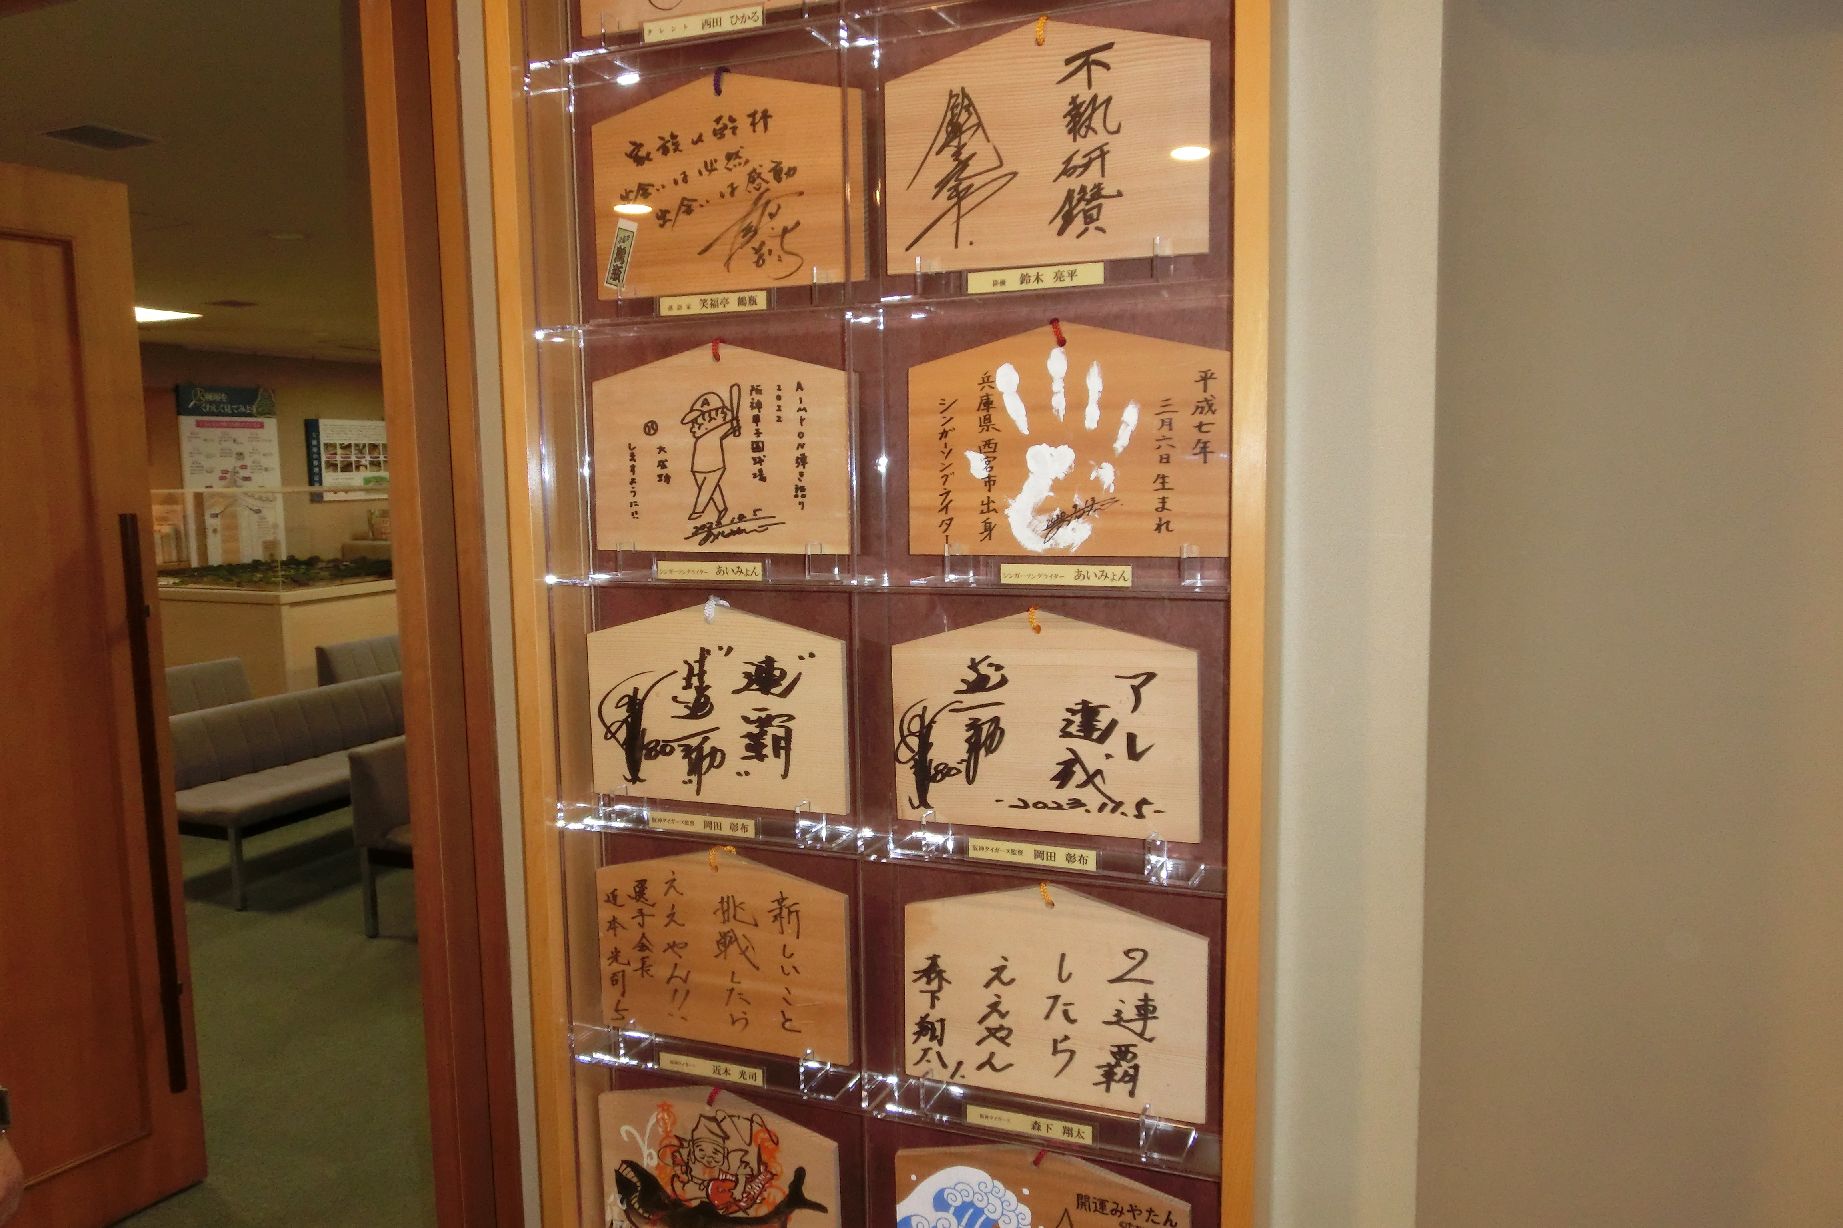 タレント 西田 ひかる
家族に乾杯
出会いは必然
出会いは感動
落語家 笑福亭 鶴瓶
不執研鑽
俳優 鈴木 亮平
Aimyon弾き語り
2022
阪神甲子園球場
大成功
しますように!!
2022.10.5
シンガーソングライター あいみょん
平成七年
三月六日生まれ
兵庫県西宮市出身
シンガーソングライター
シンガーソングライター あいみょん
"連覇"
80
阪神タイガース監督 岡田 彰布
アレ
達成
-2023.11.5-
道一筋
80
阪神タイガース監督 岡田 彰布
新しいこと
挑戦したら
ええやん!!
選手会長
近本光司 5
阪神タイガース 近本 光司
2連覇
したら
ええやん
森下翔太 1
阪神タイガース 森下 翔太
開運みやたん
くわしく見てみよう